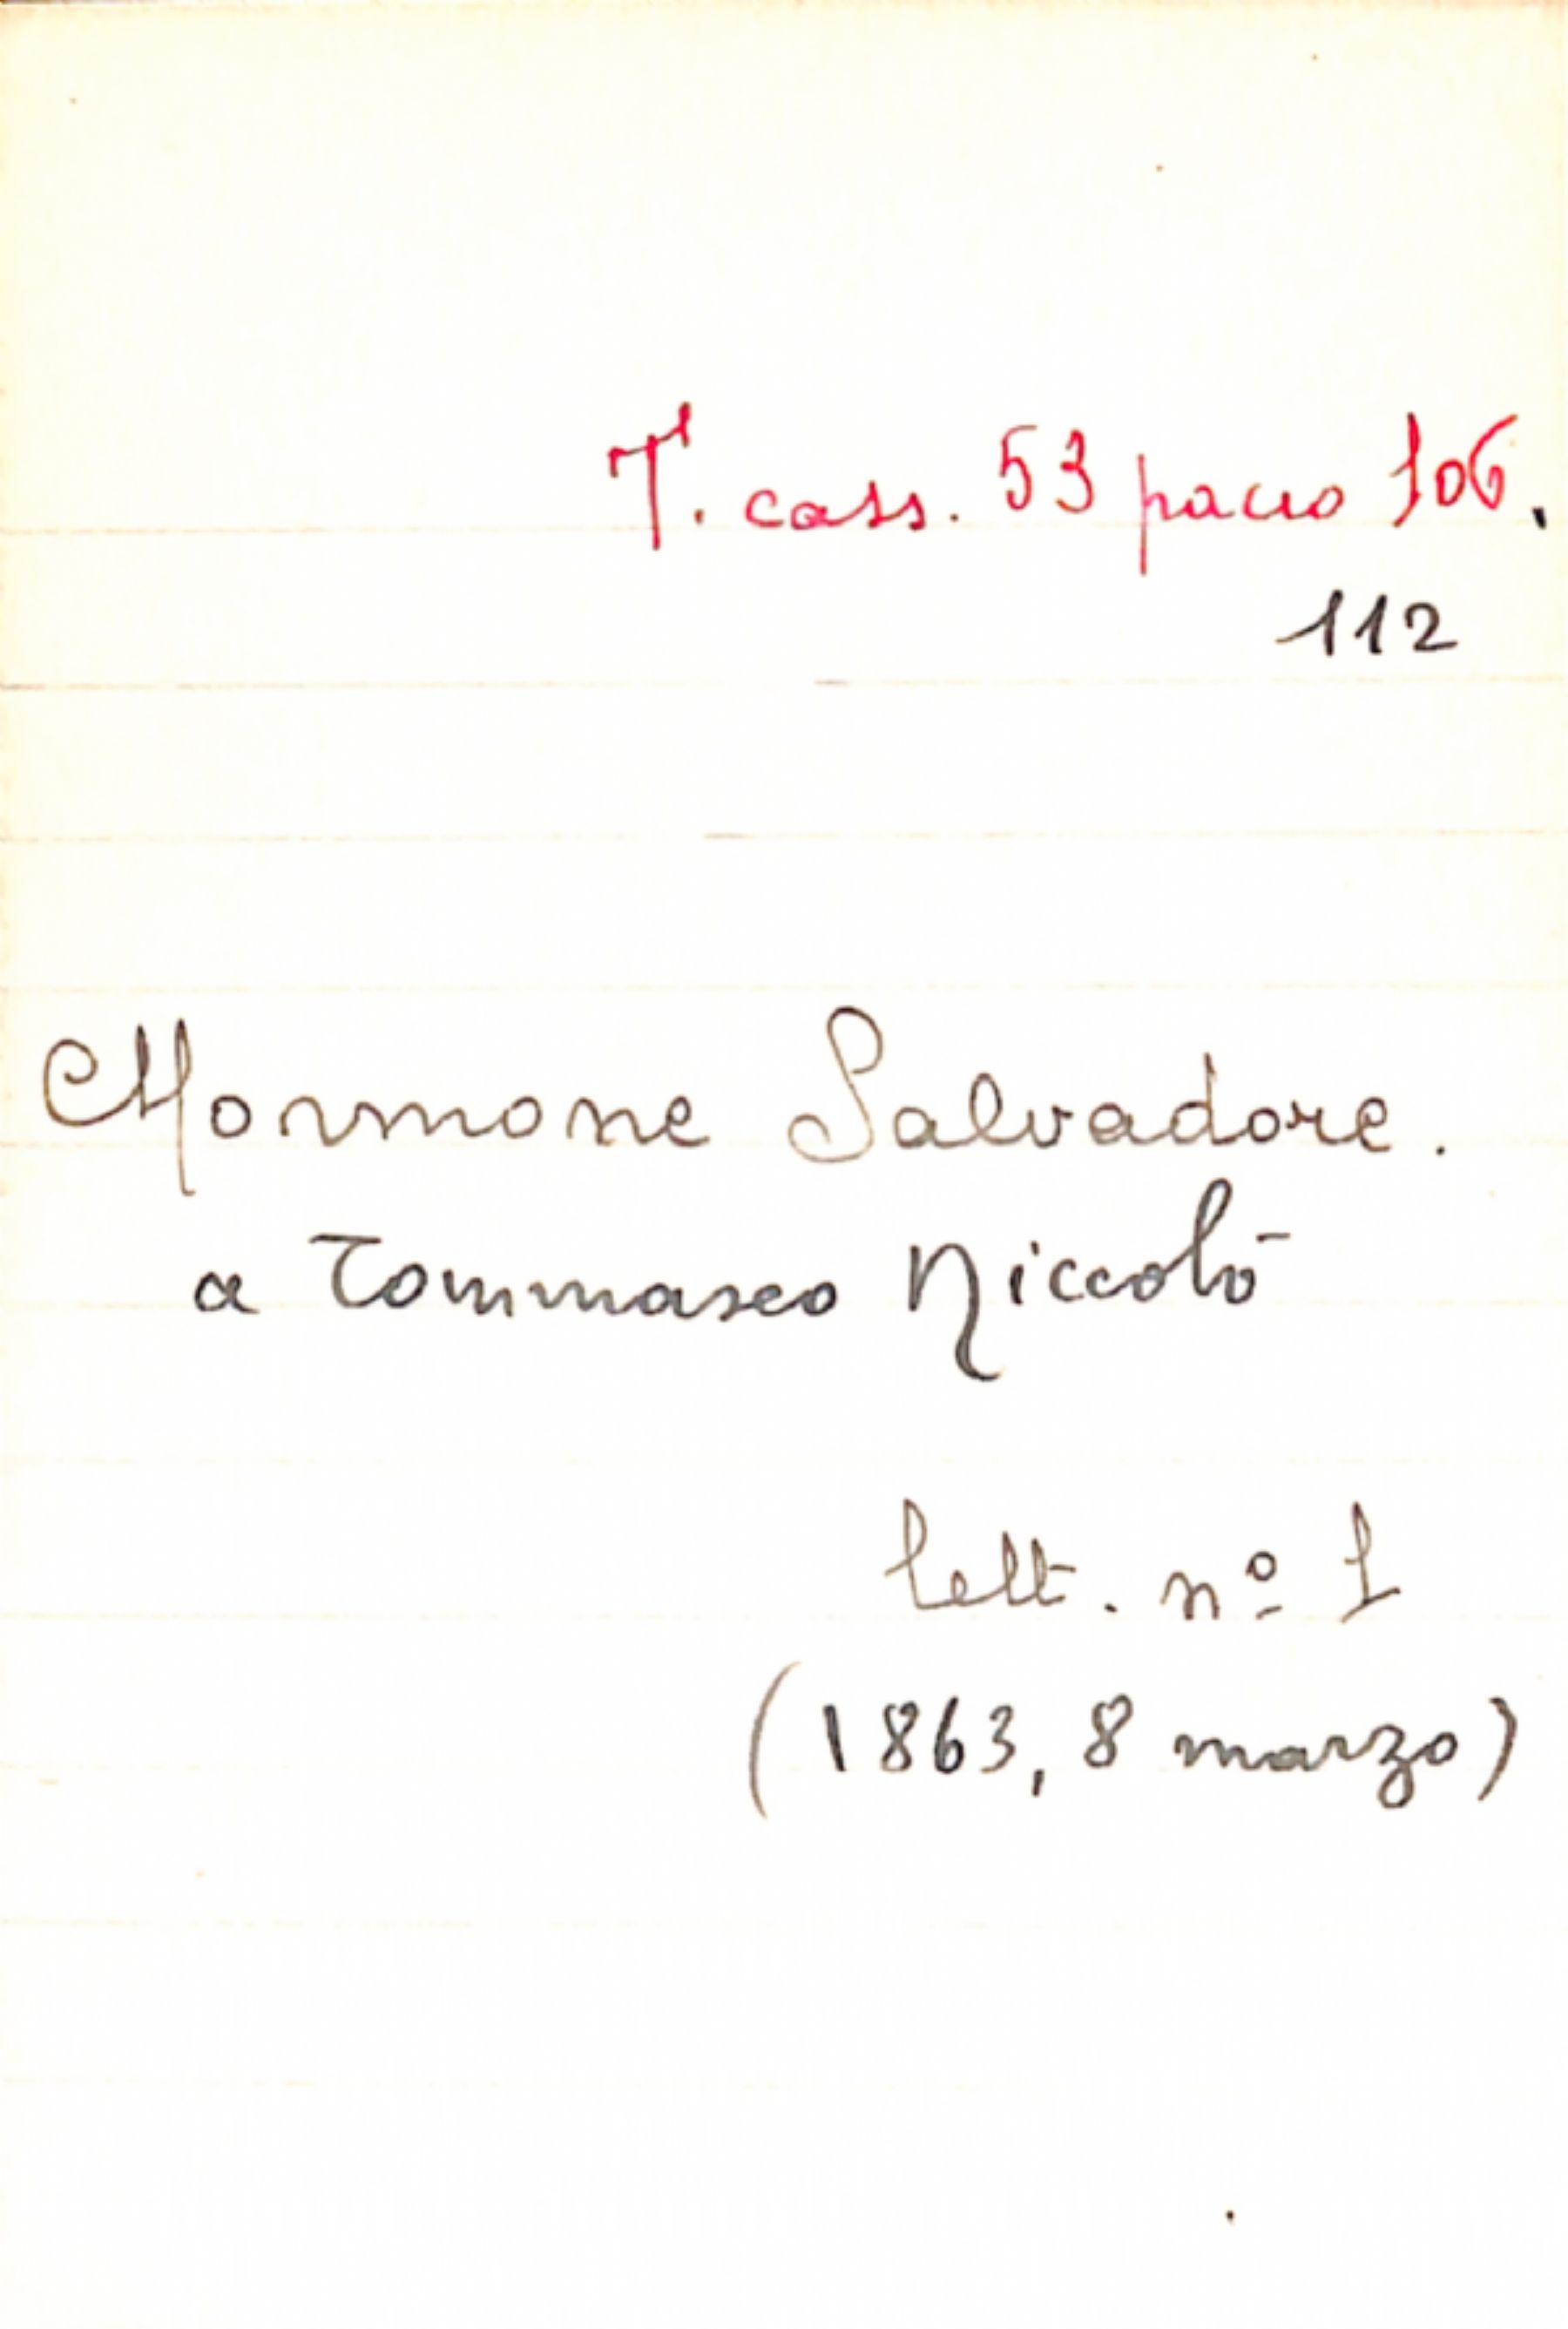 T. cass. 53 pacco 106.
112
Mormone Salvadore.
a Tommaseo Niccolò
lett. nº 1
(1863, 8 marzo)